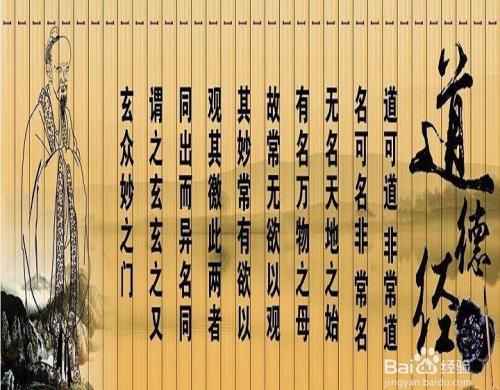 道德经
道可道 非常道
名可名 非常名
无名天地之始
有名万物之母
故常无欲以观
其妙常有欲以
观其徼此两者
同出而异名同
谓之玄玄之又
玄众妙之门
Bai 经验
jingyan.baidu.com